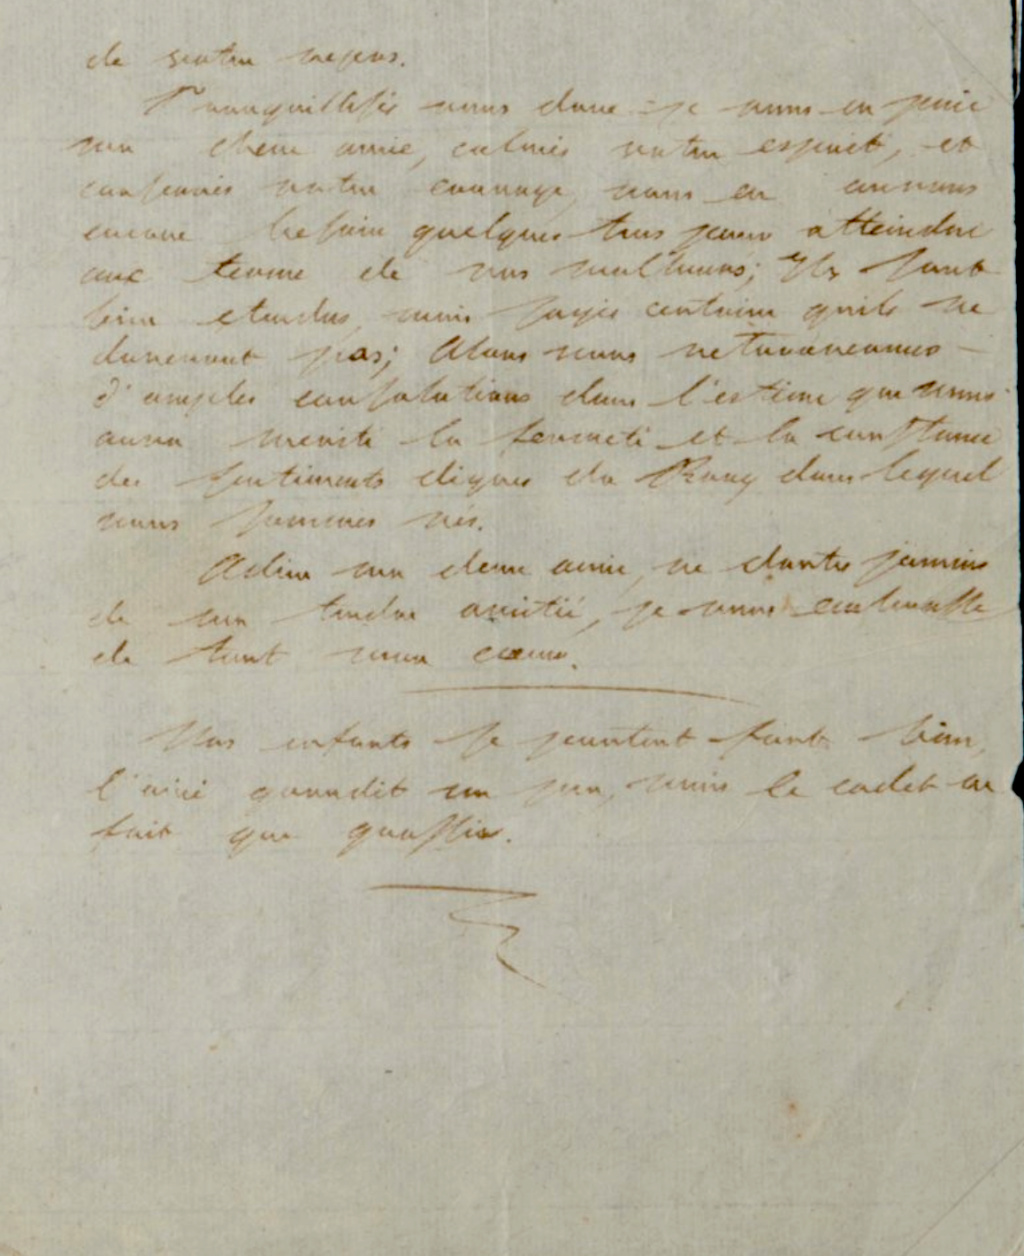 de votre repos.
Tranquillisés vous donc je vous en prie
ma chere amie, calmés votre esprit, et
conservés votre courage, nous en aurons
encore besoin quelques tems pour atteindre
aux terme de nos malheurs; Ils sont
bien etendus, mais soyés certaine quils ne
dureront pas; Alors nous retrouverons
d'amples consolations dans l'estime que nous
aura merité la fermeté et la constance
des sentiments dignes du Rang dans lequel
nous sommes nés.
Adieu ma chere amie, ne doutés jamais
de ma tendre amitié, je vous embrasse
de tout mon cœur.
Vos enfants se portent fort bien,
l'ainé grandit un peu, mais le cadet ne
fait que grossir.